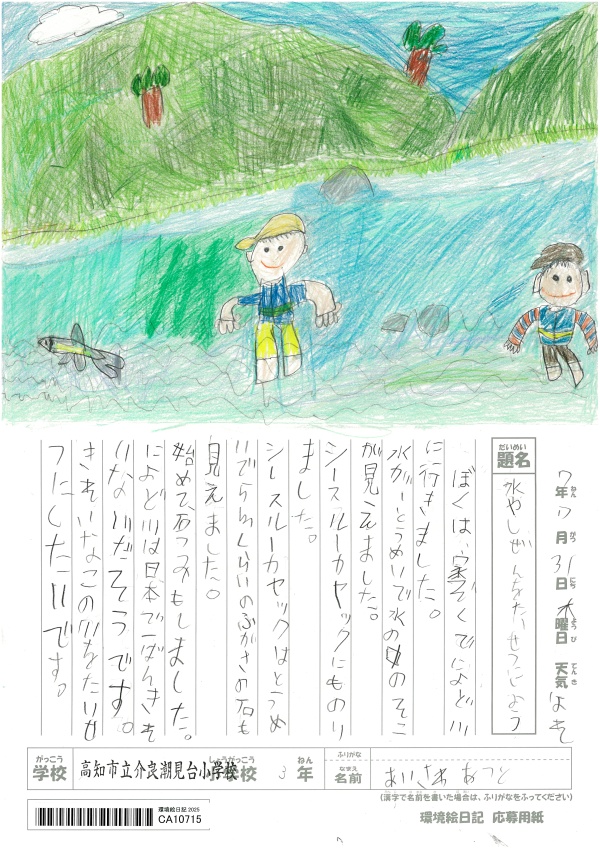 7年7月31日木曜日 天気
ねん がつ にち ようび てんき
だいめい
題名
水やしぜんをたいせつにしよう
ぼくは、家ぞくでによど川
に行きました。
水が一とうめいで水の中のそこ
が見えました。
シースルーカヤックにものり
ました。
シースルーカヤックはとうめ
いで
くらいのふかさの石も
見えました。
始めて石つみもしました。
によど川は日本で一ばんきれ
いな川だそうです。
きれいなこの川をたいせ
つにしたいです。
がっこう
学校
高知市立介良潮見台小学校
しょうがっこう
3年
ねん
ふりがな
なまえ
名前
(漢字で名前を書いた場合は、ふりがなをふってください)
環境絵日記 2025
CA10715
環境絵日記 応募用紙